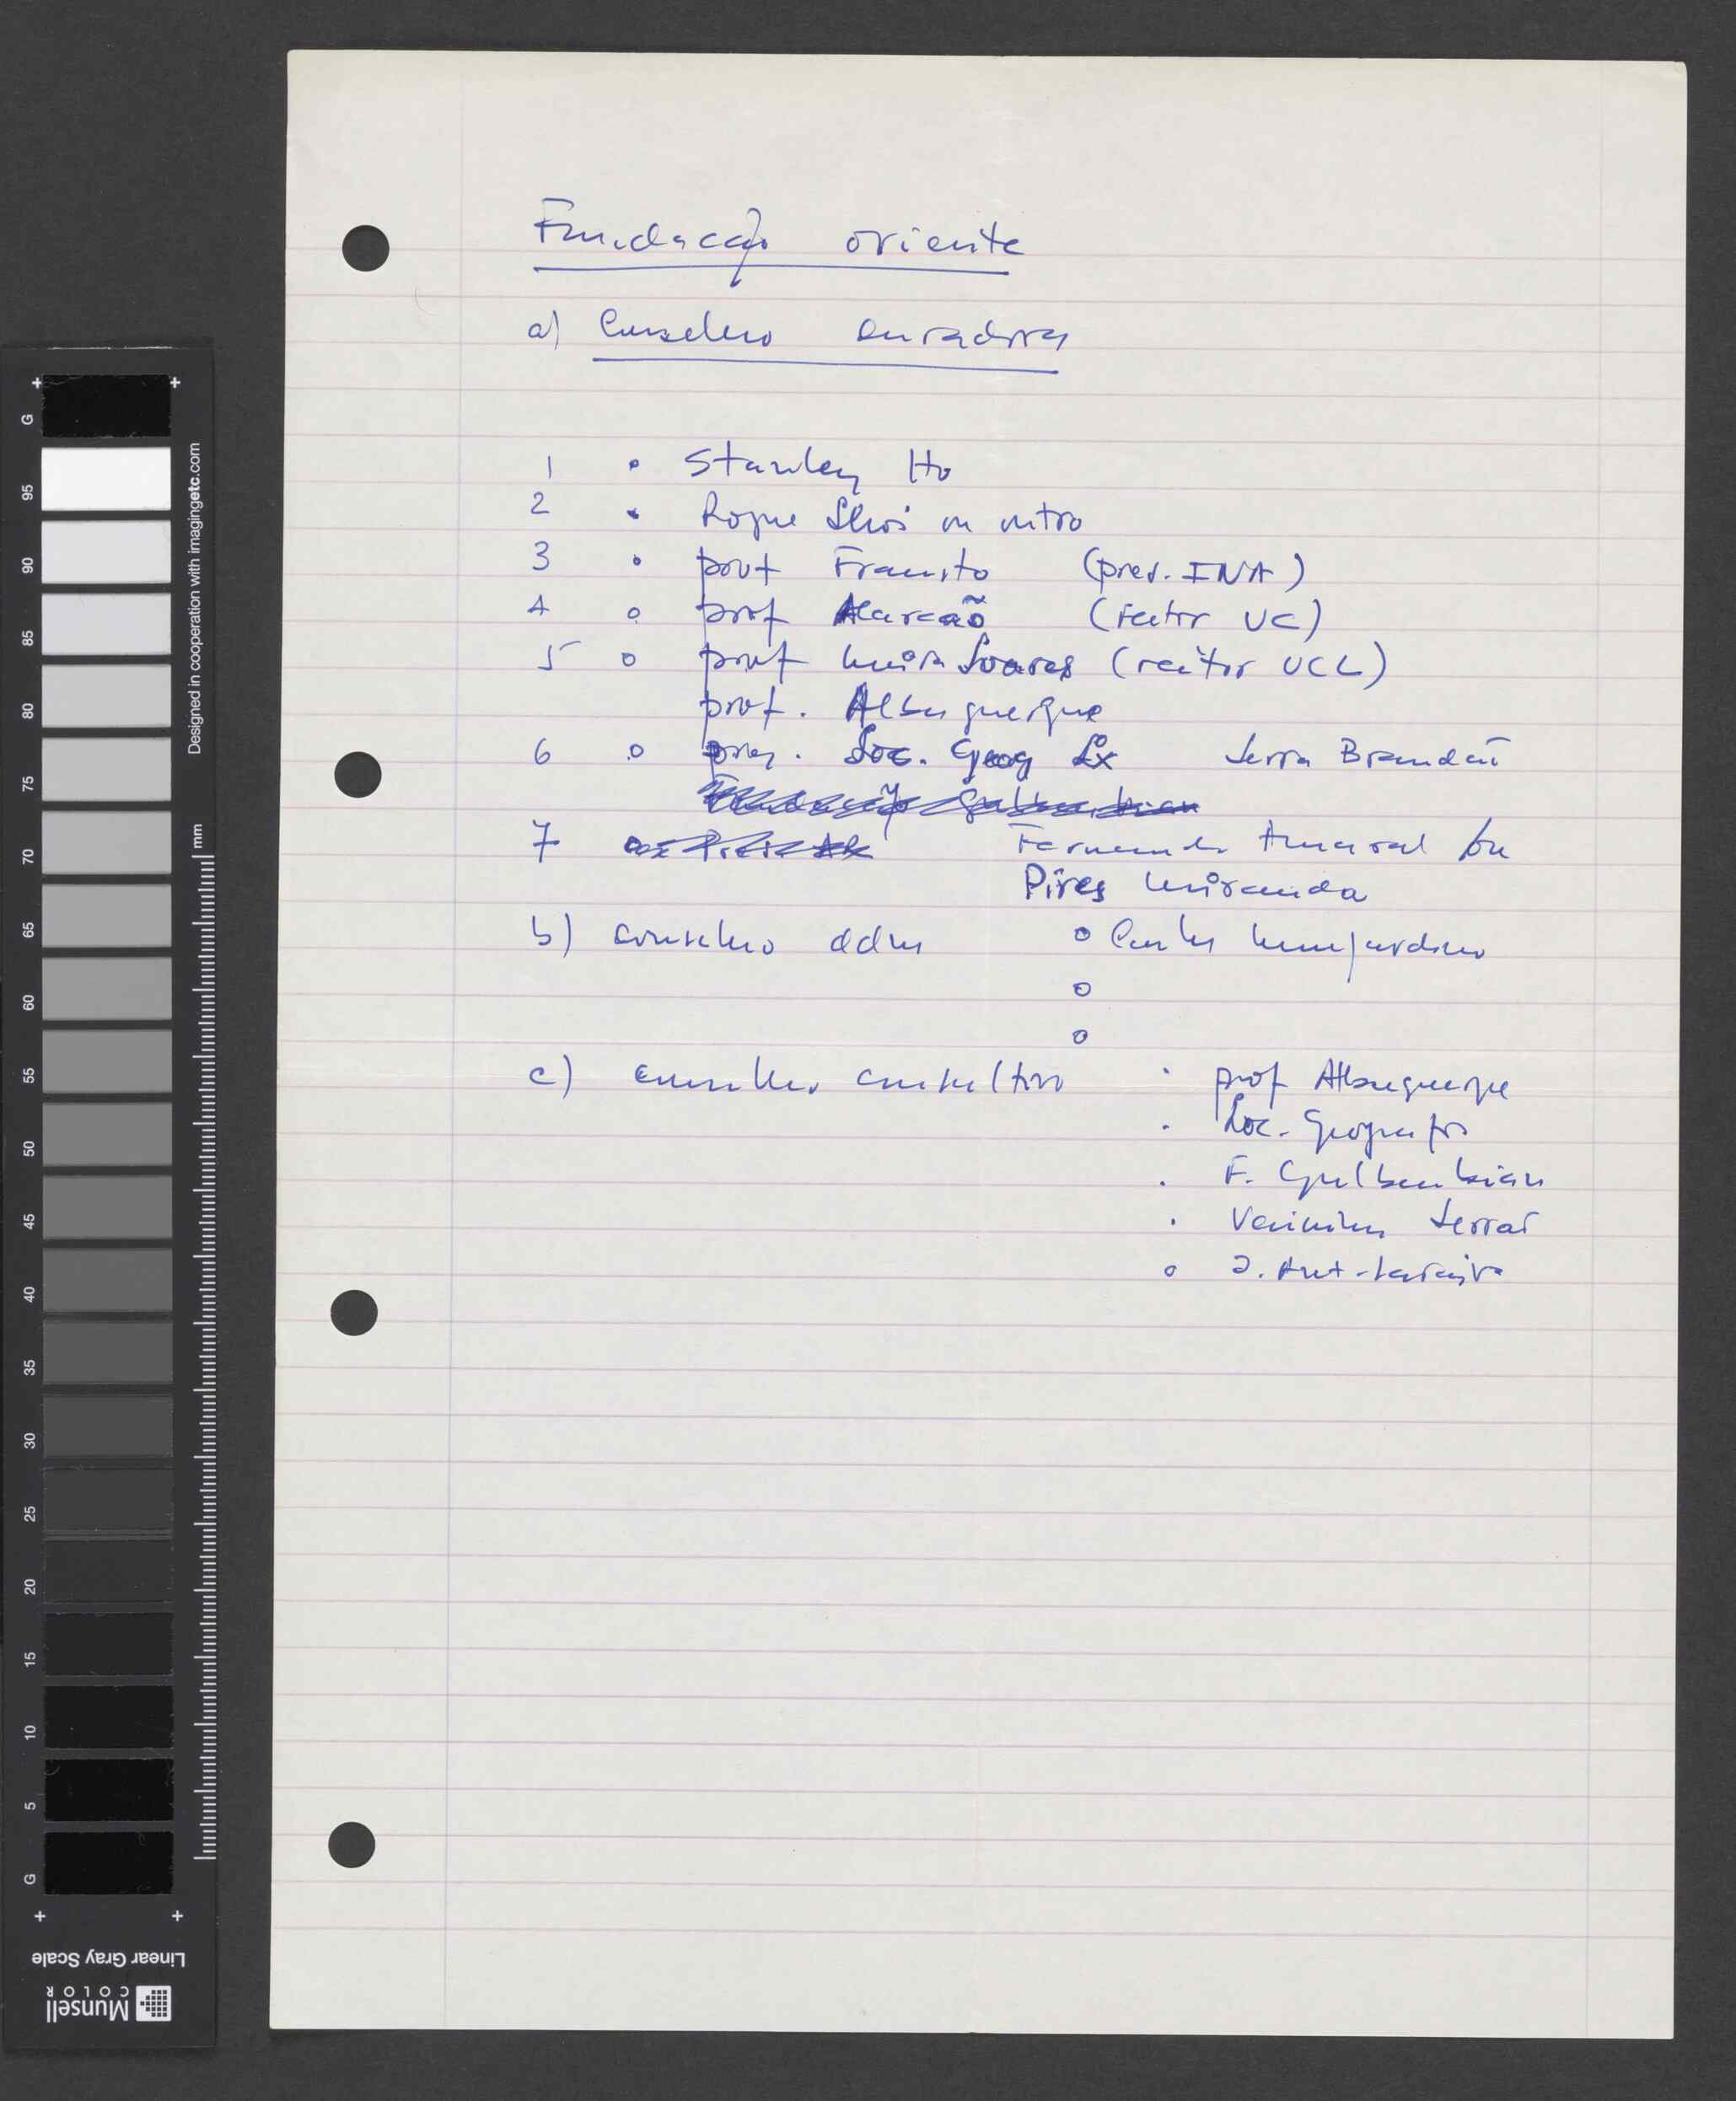 Fundação oriente
a) Conselho curadores
1 • Stanley Ho
2 • Roque Choi ou outro
3 • prof Frausto (pres. INA)
4 o prof Alarcão (reitor UC)
5 o prof Meira Soares (reitor UCL)
prof. Albuquerque
6 o pres. Soc. Geog Lx Serra Brandão
7 Fernando Amaral ou
Pires Miranda
b) conselho adm o Carlos Monjardino
o
o
c) conselho consultivo • prof Albuquerque
• Soc. Geografia
• F. Gulbenkian
• Veríssimo Serrão
o J. Ant. Saraiva
G
95
90
85
80
75
70
65
60
55
50
45
40
35
30
25
20
15
10
5
G
Designed in cooperation with imagingetc.com
mm
Linear Gray Scale
Munsell
COLOR